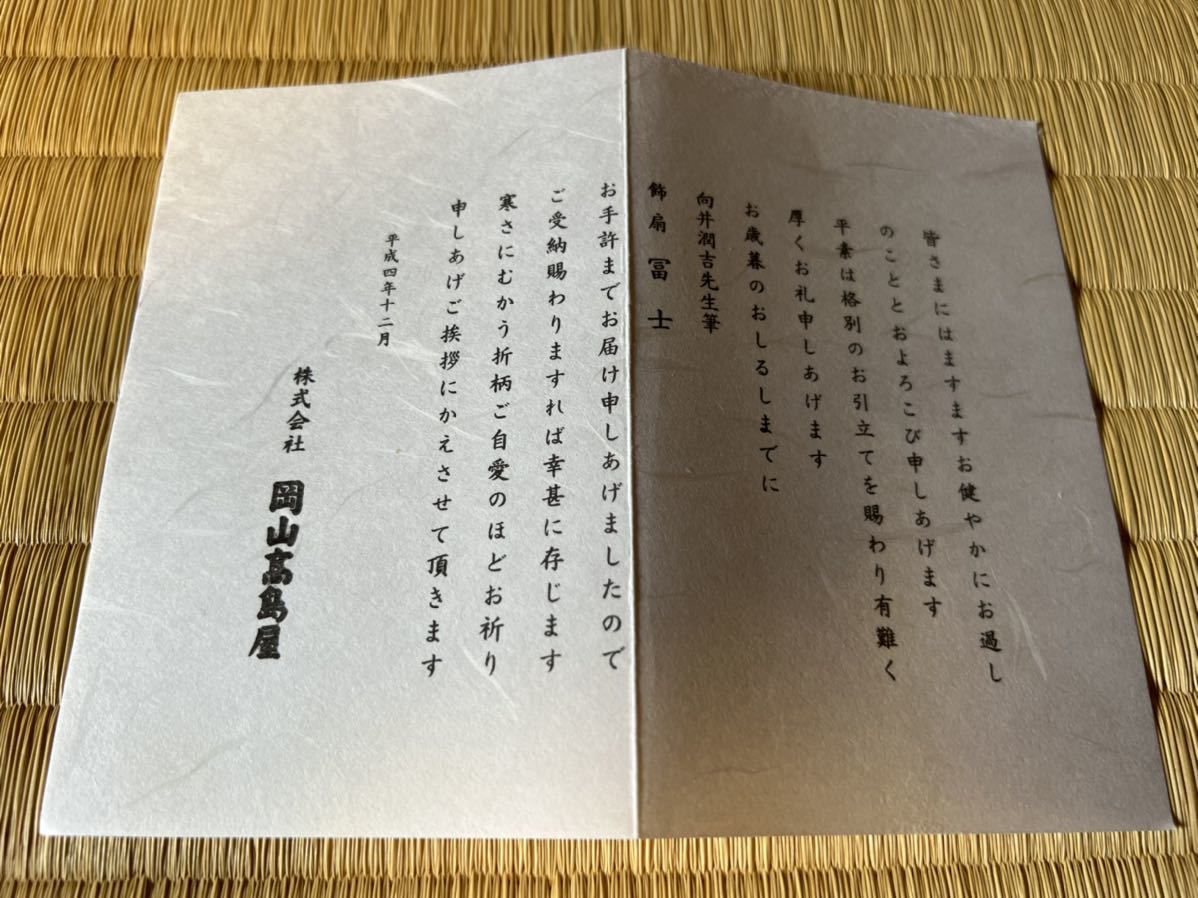 皆さまにはますますお健やかにお過し
のこととおよろこび申しあげます
平素は格別のお引立てを賜わり有難く
厚くお礼申しあげます
お歳暮のおしるしまでに
向井潤吉先生筆
飾扇 冨士
お手許までお届け申しあげましたので
ご受納賜わりますれば幸甚に存じます
寒さにむかう折柄ご自愛のほどお祈り
申しあげご挨拶にかえさせて頂きます
平成四年十二月
株式会社 岡山髙島屋